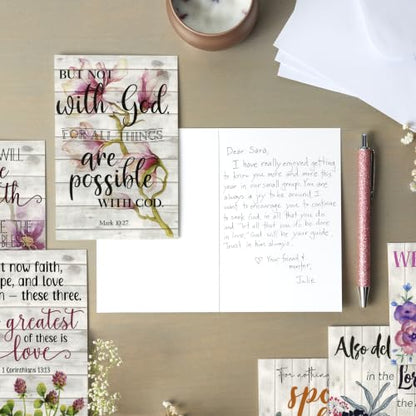 BUT NOT
with God,
FOR ALL THINGS
are
possible
WITH GOD.
Mark 10:27
Dear Sara,
I have really enjoyed getting
to know you more and more this
year in our small group. You are
always a joy to be around. I
want to encourage you to continue
to seek God in all that you do
and "let all that you do be done
in love." God will be your guide.
Trust in him always.
♡ Your friend &
mentor,
Julie
WILL
THE
now faith,
and love
— these three.
greatest
of these is
love
1 Corinthians 13:13
For nothing
Also del
in the